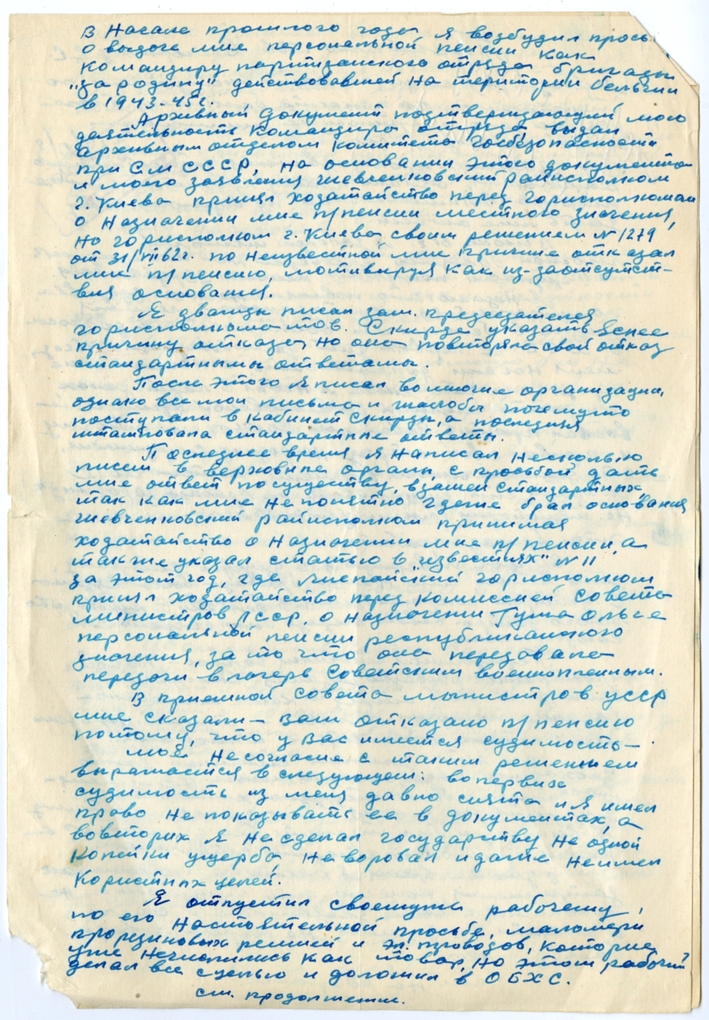 В Начале прошлого года Я возбудил прось
о выдаче мне персональной пенсии как
командиру партизанского отряда бригады
"за родину" действовавшей на територии бельгии
в 1943-45г.
Архивный документ подтверждающий мою
деятельность командира отряда, выдан
архивным отделом комитета госбезопасности
при СМ СССР, на основании этого документа
и моего заявления шевченковский райисполком
г. Киева принял ходатайство перед горисполкомом
о Назначении мне п/пенсии местного значения,
но горисполком г. Киева своим решением №1279
от 31/VII 62г. по неизвестной мне причине отказал
мне п/пенсию, мотивируя как из-заотсутст-
вия основания.
Я дважды писал зам. председателя
горисполкома тов. Скирде указать яснее
причину отказа, но она повторяла свой отказ
стандартными ответами.
После этого я писал во многие организации,
однако все мои письма и жалобы почемуто
поступали в кабинет Скирды, а последняя
штамповала стандартные ответы.
Последнее время я написал несколько
писем в верховные органы, с просьбой дать
мне ответ посуществу, взамен стандартных
так как мне не понятно где же брал основания
шевченковский райисполком принимая
ходатайство о назначении мне п/пенсии, а
также указал статью в "известиях" №11
за этот год, где горисполком
принял ходатайство перед комиссией Совета
министров РССР, о назначении Гума Ольге
персональной пенсии республиканского
значения, за то что она передавала
передачи в лагерь Советским военнопленным.
В приемной Совета министров УССР
мне сказали — вам отказано п/пенсию
потому, что у вас имеется судимость —
моё несогласие с таким решением
выражается в следующем: вопервых
судимость из меня давно снята и Я имел
право не показывать ее в документах, а
вовторых Я не сделал государству не одной
копейки ущерба, не воровал идаже неимел
користных целей.
Я отпустил своемуты рабочему,
по его настоятельной просьбе, маломерн
прорезиновых ремней и эл. проводов, которые
уже нечислились как товар, но этот рабочий
делал все сцелью и доложил в ОБХС.
см. продолжении.